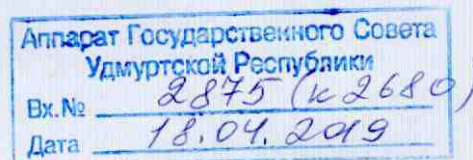 Аппарат Государственного Совета
Удмуртской Республики
Вх.№ 2875 (к 2680)
Дата 18.04.2019